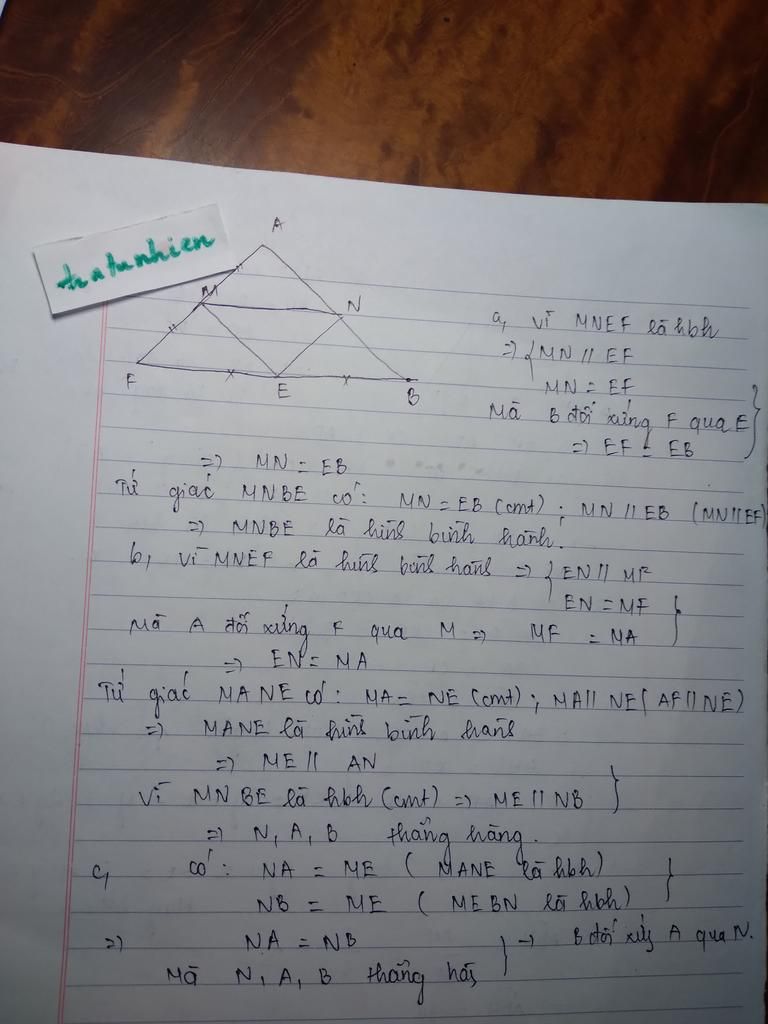 tratunhien
A
M
N
F
E
B
a, Vì MNEF là hbh
=> { MN // EF
MN = EF
Mà B đối xứng F qua E }
=> EF = EB
=> MN = EB
Tứ giác MNBE có: MN = EB (cmt) ; MN // EB (MN // EF)
=> MNBE là hình bình hành.
b, Vì MNEF là hình bình hành => { EN // MF
EN = MF
Mà A đối xứng F qua M => MF = MA }
=> EN = MA
Tứ giác MANE có: MA = NE (cmt) ; MA // NE ( AF // NE)
=> MANE là hình bình hành
=> ME // AN
Vì MNBE là hbh (cmt) => ME // NB }
=> N, A, B thẳng hàng.
c, có: NA = ME ( MANE là hbh)
NB = ME ( MEBN là hbh) }
=> NA = NB } => B đối xứng A qua N.
Mà N, A, B thẳng hàng